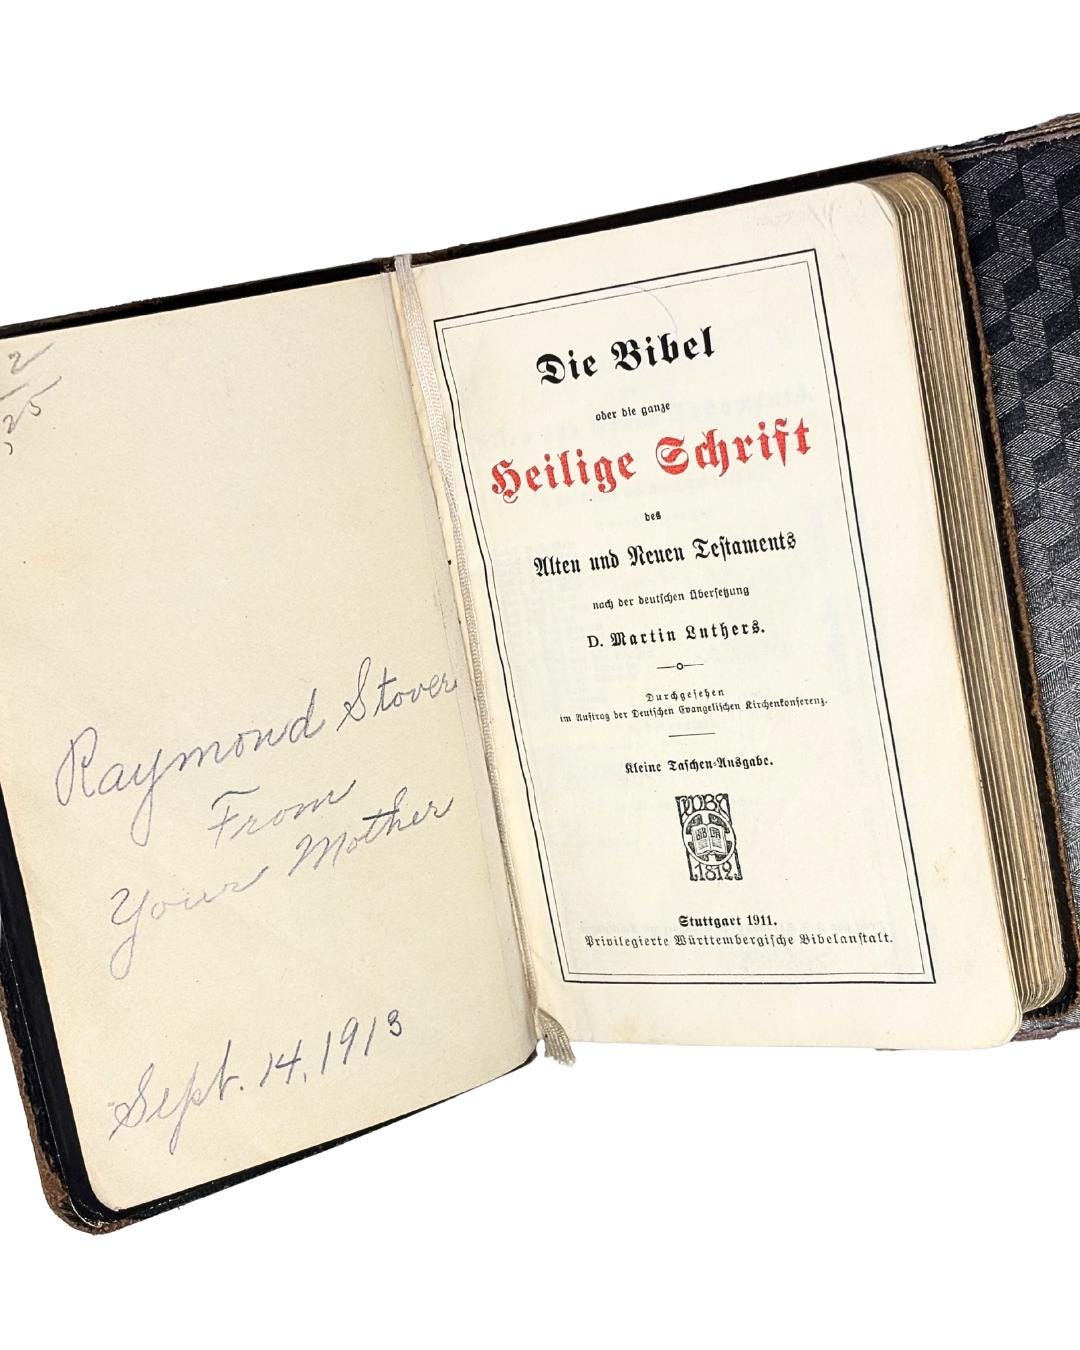 2
25
Raymond Stover
From
Your Mother
Sept. 14, 1913
Die Bibel
oder die ganze
Heilige Schrift
des
Alten und Neuen Testaments
nach der deutschen Übersetzung
D. Martin Luthers.
Durchgesehen
im Auftrag der Deutschen Evangelischen Kirchenkonferenz.
Kleine Taschen-Ausgabe.
1812
Stuttgart 1911.
Privilegierte Württembergische Bibelanstalt.